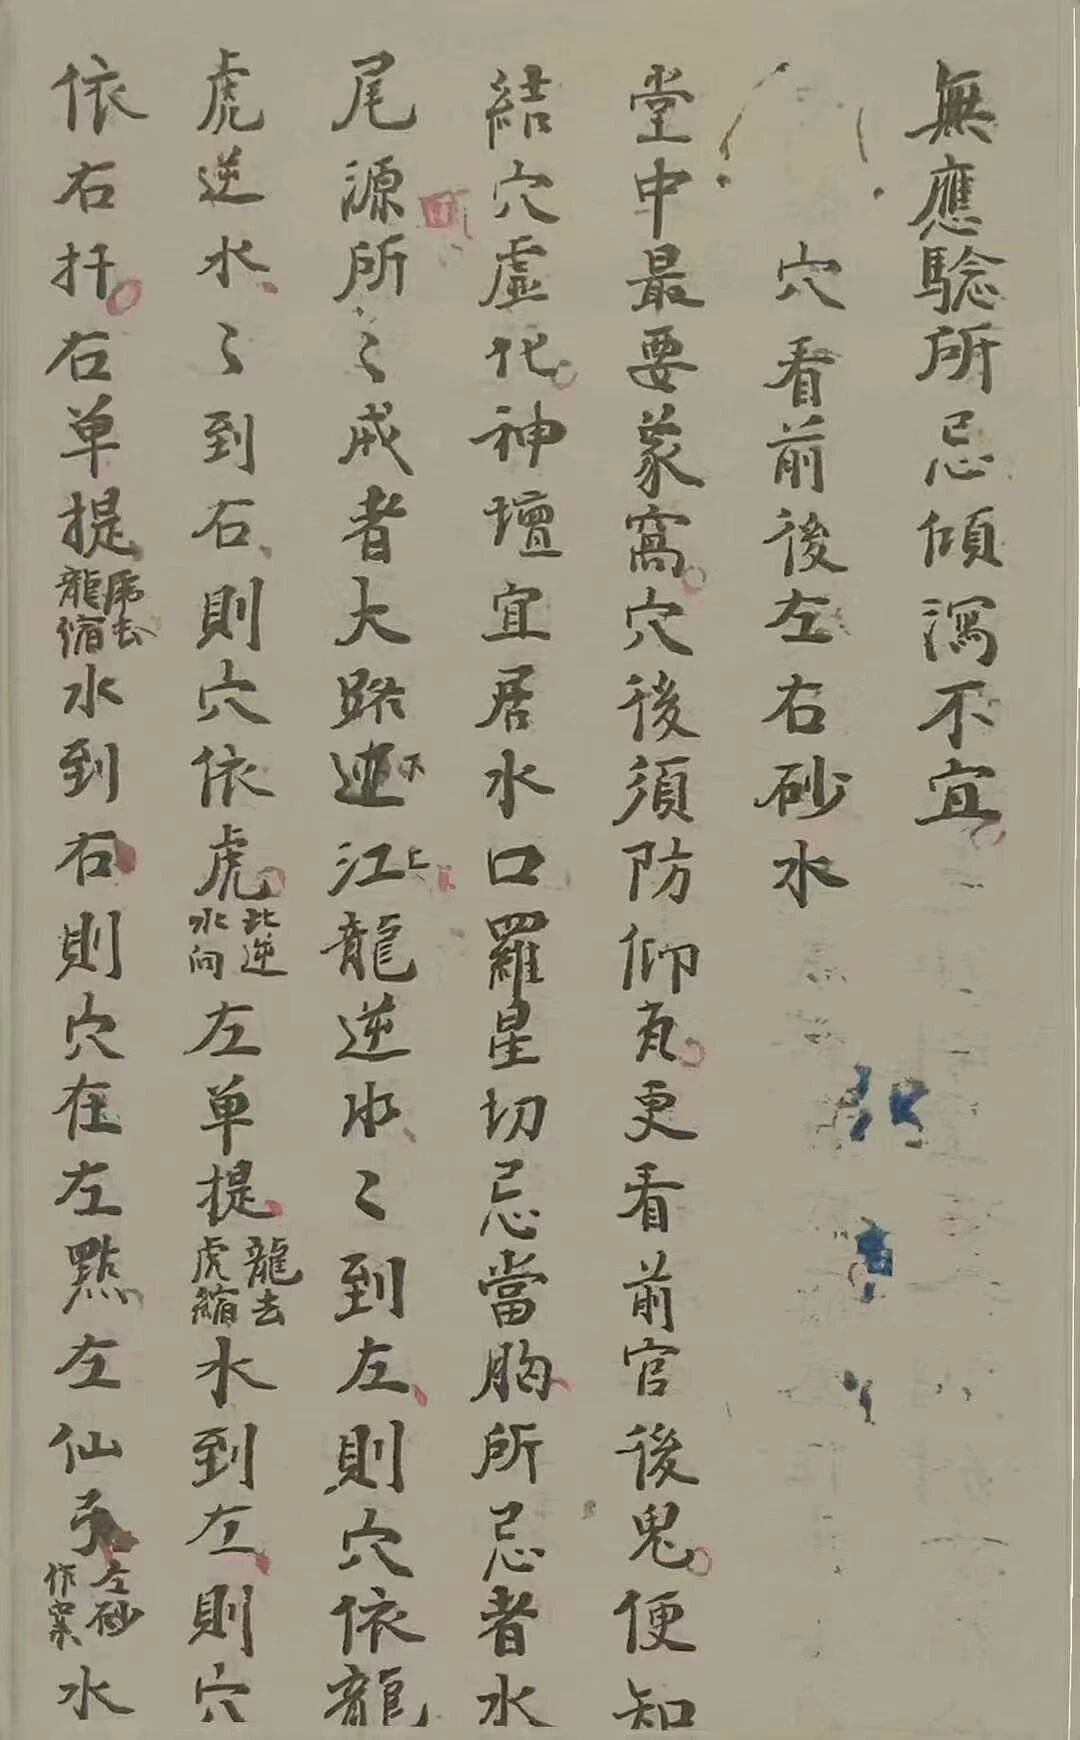 無應騐所忌傾瀉不宜
穴看前後左右砂水
堂中最要蒙窩穴後須防仰瓦更看前官後鬼便知
結穴虛花神壇宜居水口羅星切忌當胸所忌者水
尾源所〻戒者大路迹下江上龍逆水〻到左則穴依龍
虎逆水〻到右則穴依虎此逆水向左单提龍去虎縮水到左則穴
依右扦右单提虎去龍縮水到右則穴在左點左仙弓左砂作案水